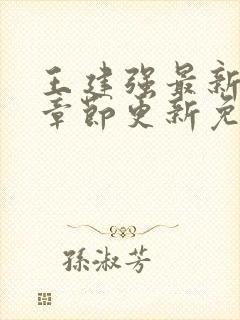 王建强最新
章节更新免
孙淑芳